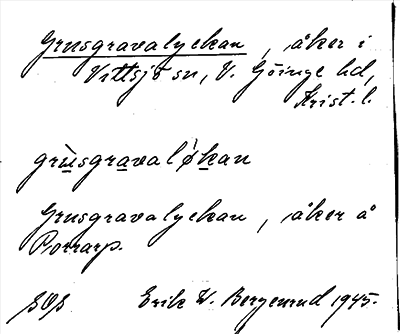 Grusgravalyckan, åker i
Vittsjö sn, V. Göinge hd,
Krist. l.
grùsgravaløkan
Grusgravalyckan, åker å
Porrarp.
Erik W. Bergenrud 1945.